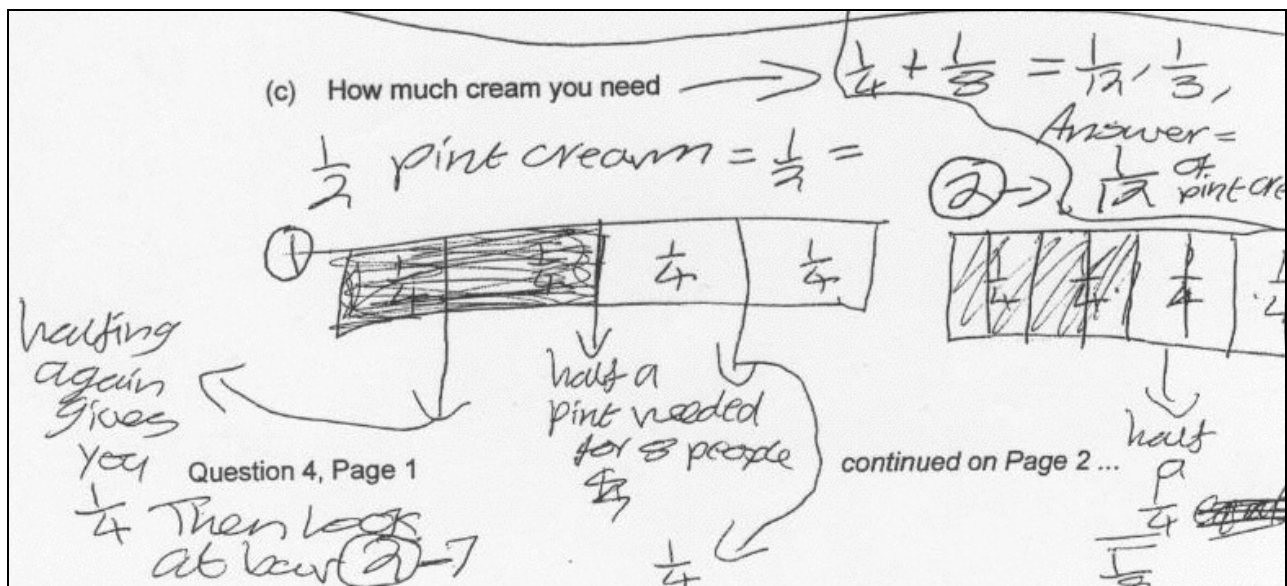 (c) How much cream you need
1/4 + 1/8 = 1/12, 1/3,
1/2 pint cream = 1/2 =
Answer =
2 → 1/12 of
pint cre
1
1/4 1/4 1/4 1/4
1/4 1/4 1/4 1/4
halfing
again
gives
you
1/4 Then Look
at bar 2 →
half a
pint needed
for 8 people
1/4
half
a
1/4
1/8
Question 4, Page 1
continued on Page 2 ...